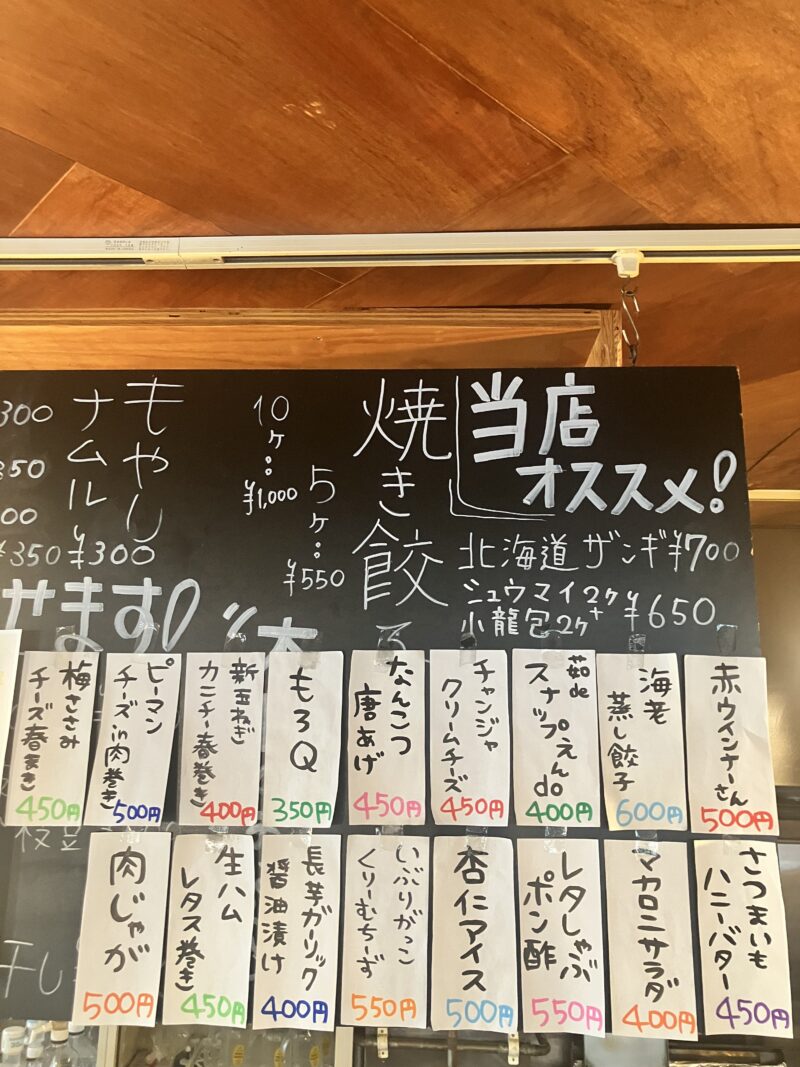 当店
オススメ!
北海道ザンギ¥700
シュウマイ2ケ+
小龍包2ケ
¥650
焼き餃
5ケ:
¥550
10ケ:
¥1,000
もやし
ナムル
¥300
300
350
00
¥350
せます!
赤ウインナーさん
500円
海老
蒸し餃子
600円
茹de
スナップえんdo
400円
チャンジャ
クリームチーズ
450円
なんこつ
唐あげ
450円
もろQ
350円
新玉ねぎ
カニチー春巻き
400円
ピーマン
チーズin肉巻き
500円
梅ささみ
チーズ春まき
450円
さつまいも
ハニーバター
450円
マカロニサラダ
400円
レタしゃぶ
ポン酢
550円
杏仁アイス
500円
いぶりがっこ
くりーむちーず
550円
長芋ガーリック
醤油漬け
400円
生ハム
レタス巻き
450円
肉じゃが
500円
枝豆
干し